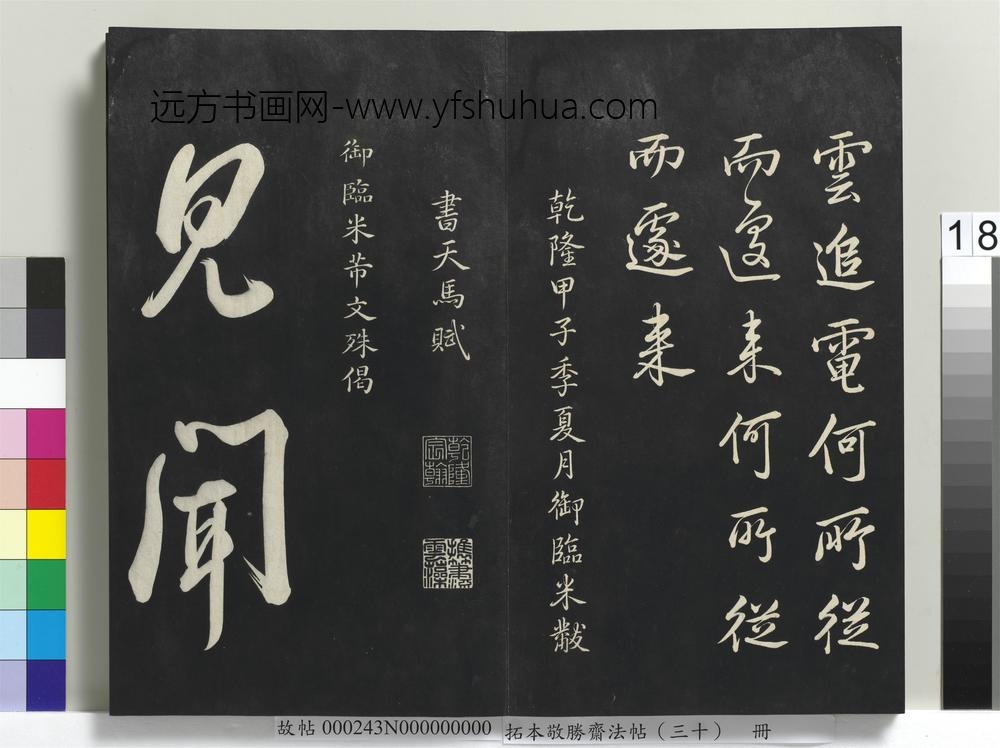 远方书画网-www.yfshuhua.com
雲追電何所從
而遽来何所從
而遽来
乾隆甲子季夏月御臨米黻
書天馬賦
乾隆宸翰
御臨米芾文殊偈
見聞
18
故帖 000243N000000000 拓本敬勝齋法帖(三十) 冊